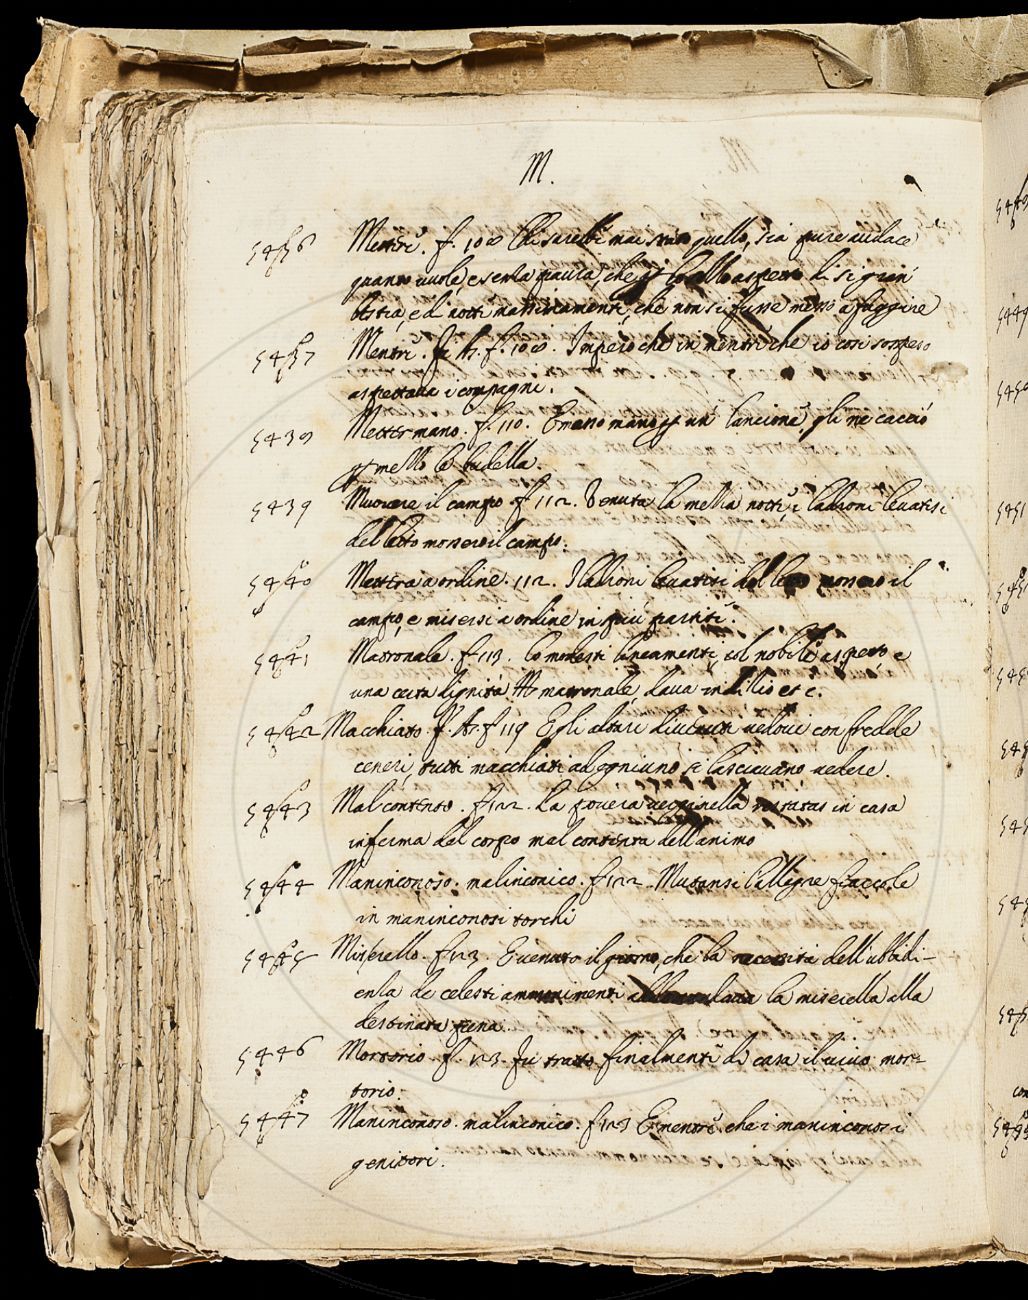 M.
5436 Mentre. f. 108 Chi sarebbe mai stato quello, sia pure audace
quanto vuole, e senza paura, che allo aspetto di si gran
bestia, e di notte massimamente, che non si fusse messo a fuggire
5437 Mentre. f. 108. Impero che in mentre che io cosi sospeso
aspettava i compagni.
5438 Metter mano. f. 110. E messo mano un lancione, gli ne cacciò
mezzo le budella.
5439 Muovere il campo f. 112. Venuta la mezza notte i ladroni levatisi
del letto mossero il campo.
5440 Mettersi a ordine. 112. I ladroni levatisi del letto mossero il
campo, e misersi a ordine in più partite.
5441 Matronale. f. 113. Co modesti lineamenti, col nobile aspetto e
una certa dignità matronale, dava indizio et c.
5442 Macchiato. f. 119 E gli altari divenuti vedovi con fredde
ceneri, tutti macchiati ad ogniuno si lasciavano vedere.
5443 Mal contento. f. 122. La povera restatasi in casa
inferma del corpo mal contenta dell'animo
5444 Maninconoso. malinconico. f. 122. Mutansi l'allegre fiaccole
in maninconosi torchi
5445 Miserello. f. 123. E venuto il giorno, che la necessità dell'ubbidi-
enza de celesti la miserella alla
destinata pena.
5446 Mortorio. f. 123. Fu tratto finalmente di casa il vivo mor-
torio.
5447 Maninconoso. malinconico. f. 123 E mentre che i maninconosi
genitori.